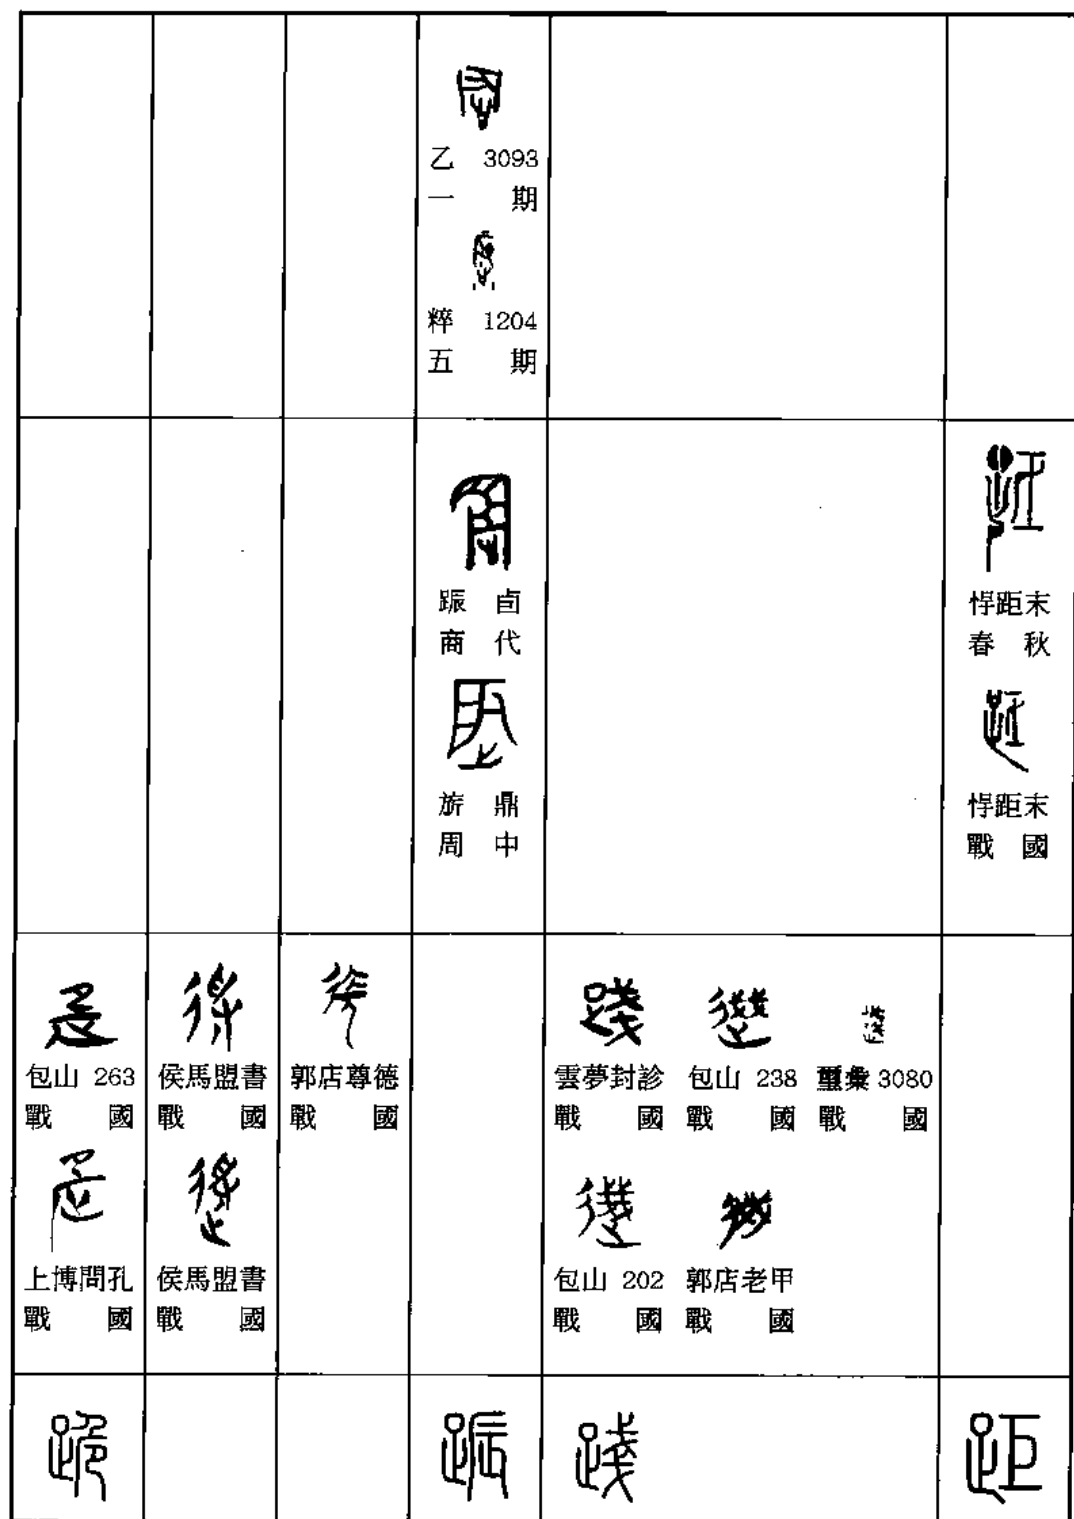 乙 3093
一 期
粹 1204
五 期
踬 卣
商 代
旂 鼎
周 中
悍距末
春 秋
悍距末
戰 國
包山 263
戰 國
上博問孔
戰 國
侯馬盟書
戰 國
侯馬盟書
戰 國
郭店尊德
戰 國
雲夢封診
戰 國
包山 238
戰 國
璽彙 3080
戰 國
包山 202
戰 國
郭店老甲
戰 國
跪
踬
踐
距